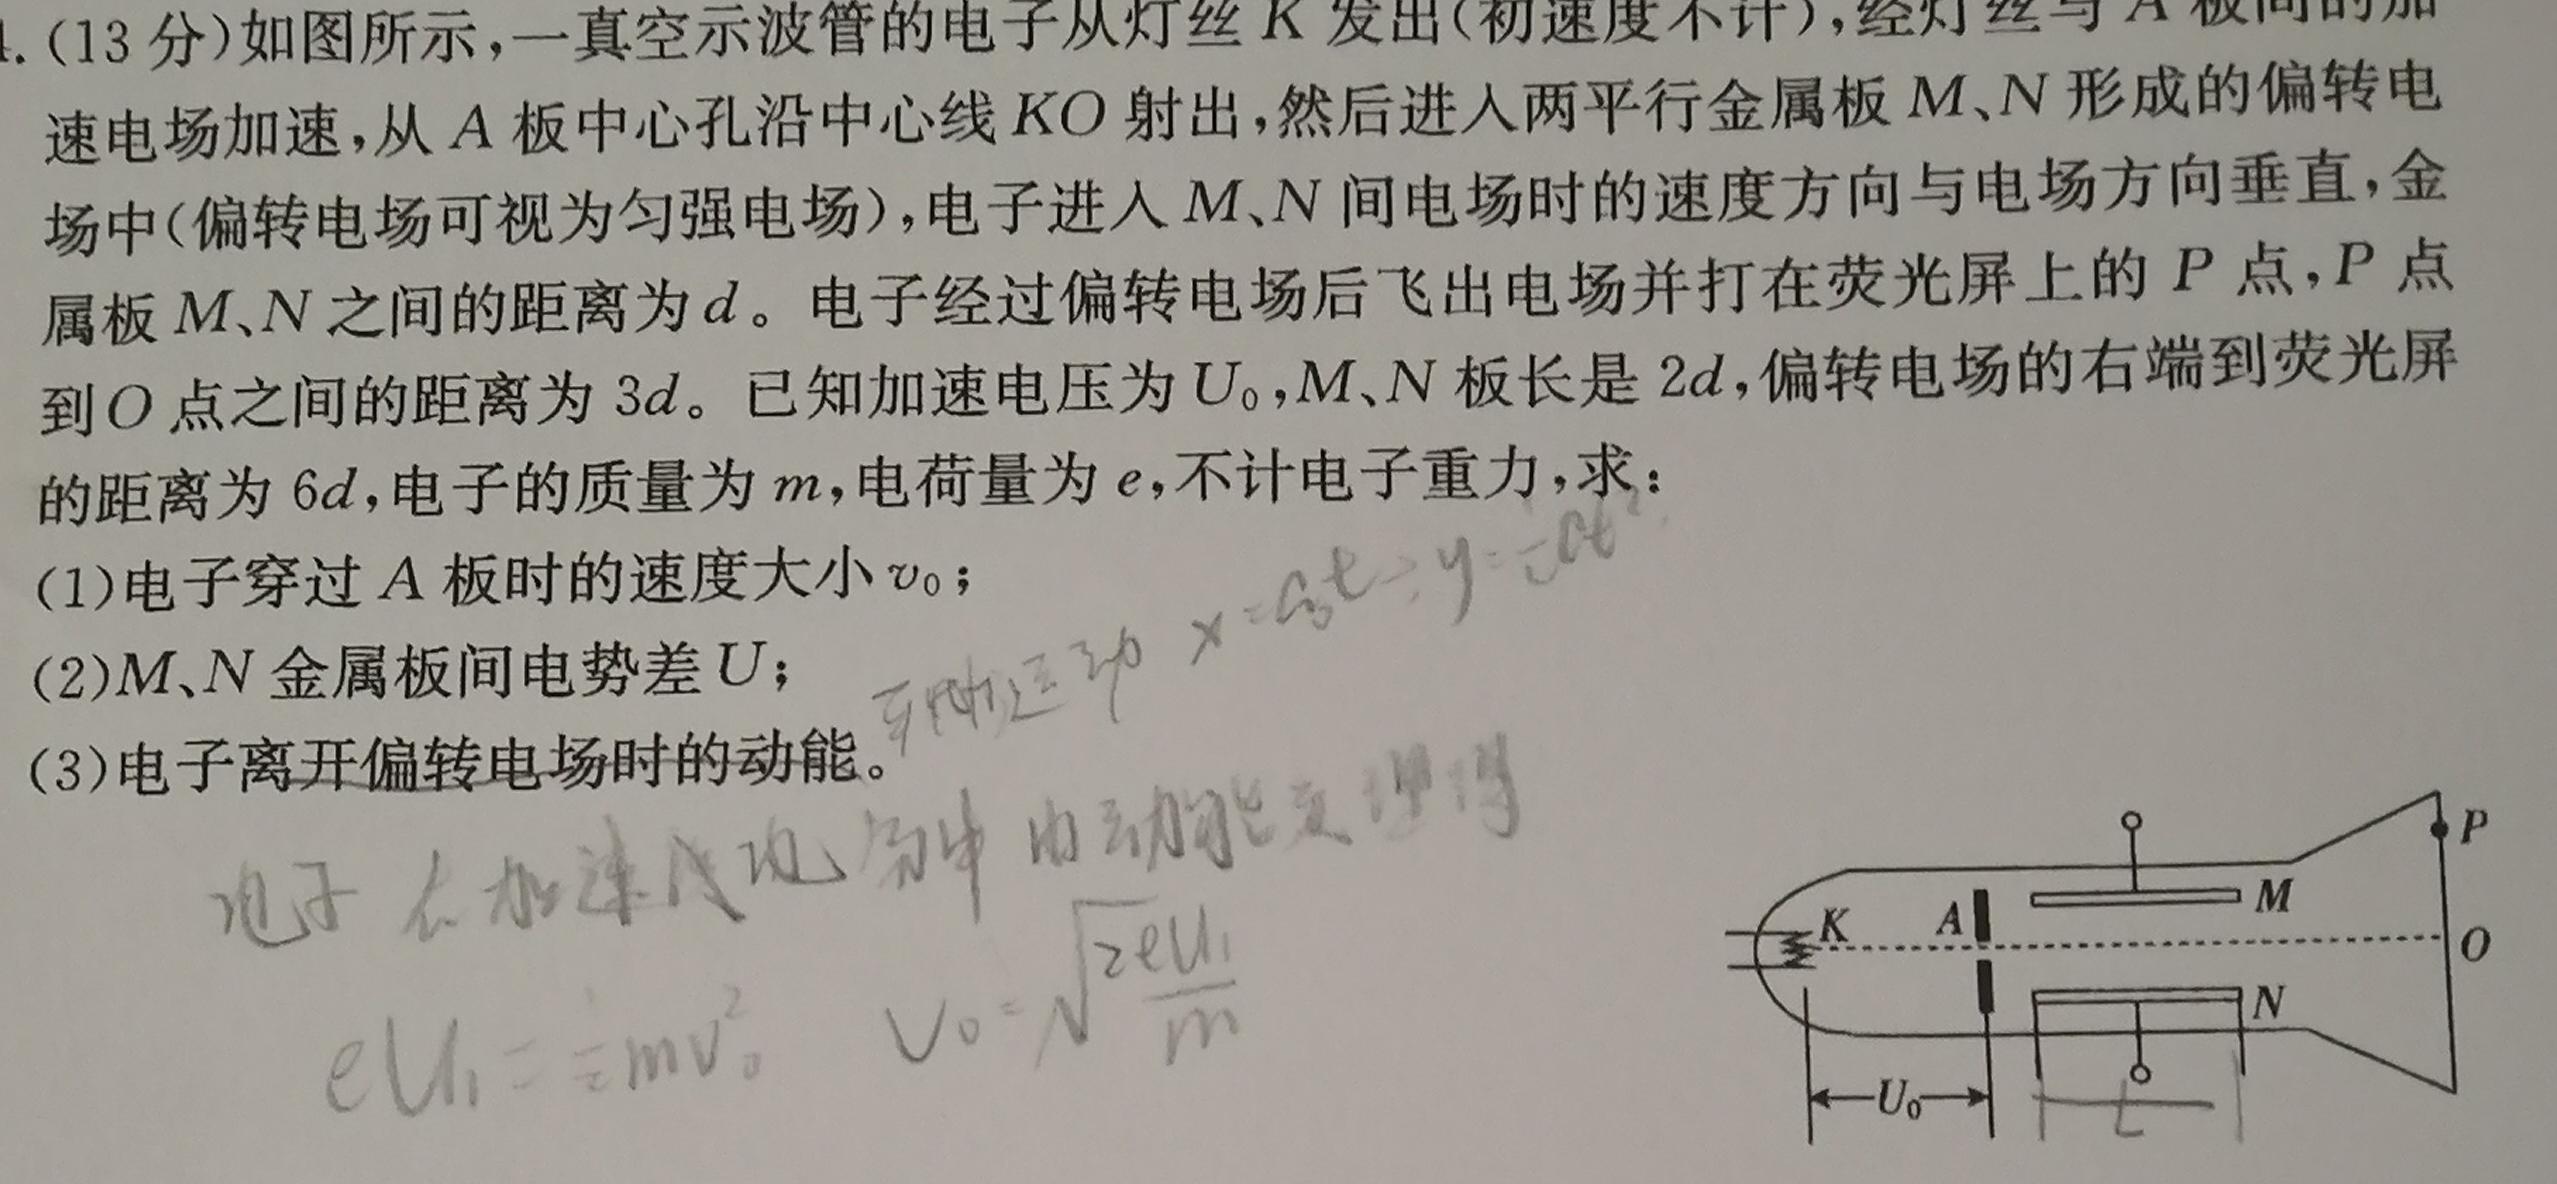 .(13分)如图所示,一真空示波管的电子从灯丝K发出(初速度不计),经灯丝与A板间的加
速电场加速,从A板中心孔沿中心线KO射出,然后进入两平行金属板M、N形成的偏转电
场中(偏转电场可视为匀强电场),电子进入M、N间电场时的速度方向与电场方向垂直,金
属板M、N之间的距离为d。电子经过偏转电场后飞出电场并打在荧光屏上的P点,P点
到O点之间的距离为3d。已知加速电压为U₀,M、N板长是2d,偏转电场的右端到荧光屏
的距离为6d,电子的质量为m,电荷量为e,不计电子重力,求:
(1)电子穿过A板时的速度大小v₀;
(2)M、N金属板间电势差U;
(3)电子离开偏转电场时的动能。
y=½at²
电子在加速 电场中由动能定理得
eU₁=½mv₀² v₀=√(2eU₁/m)
P
M
K
A
O
N
U₀
L